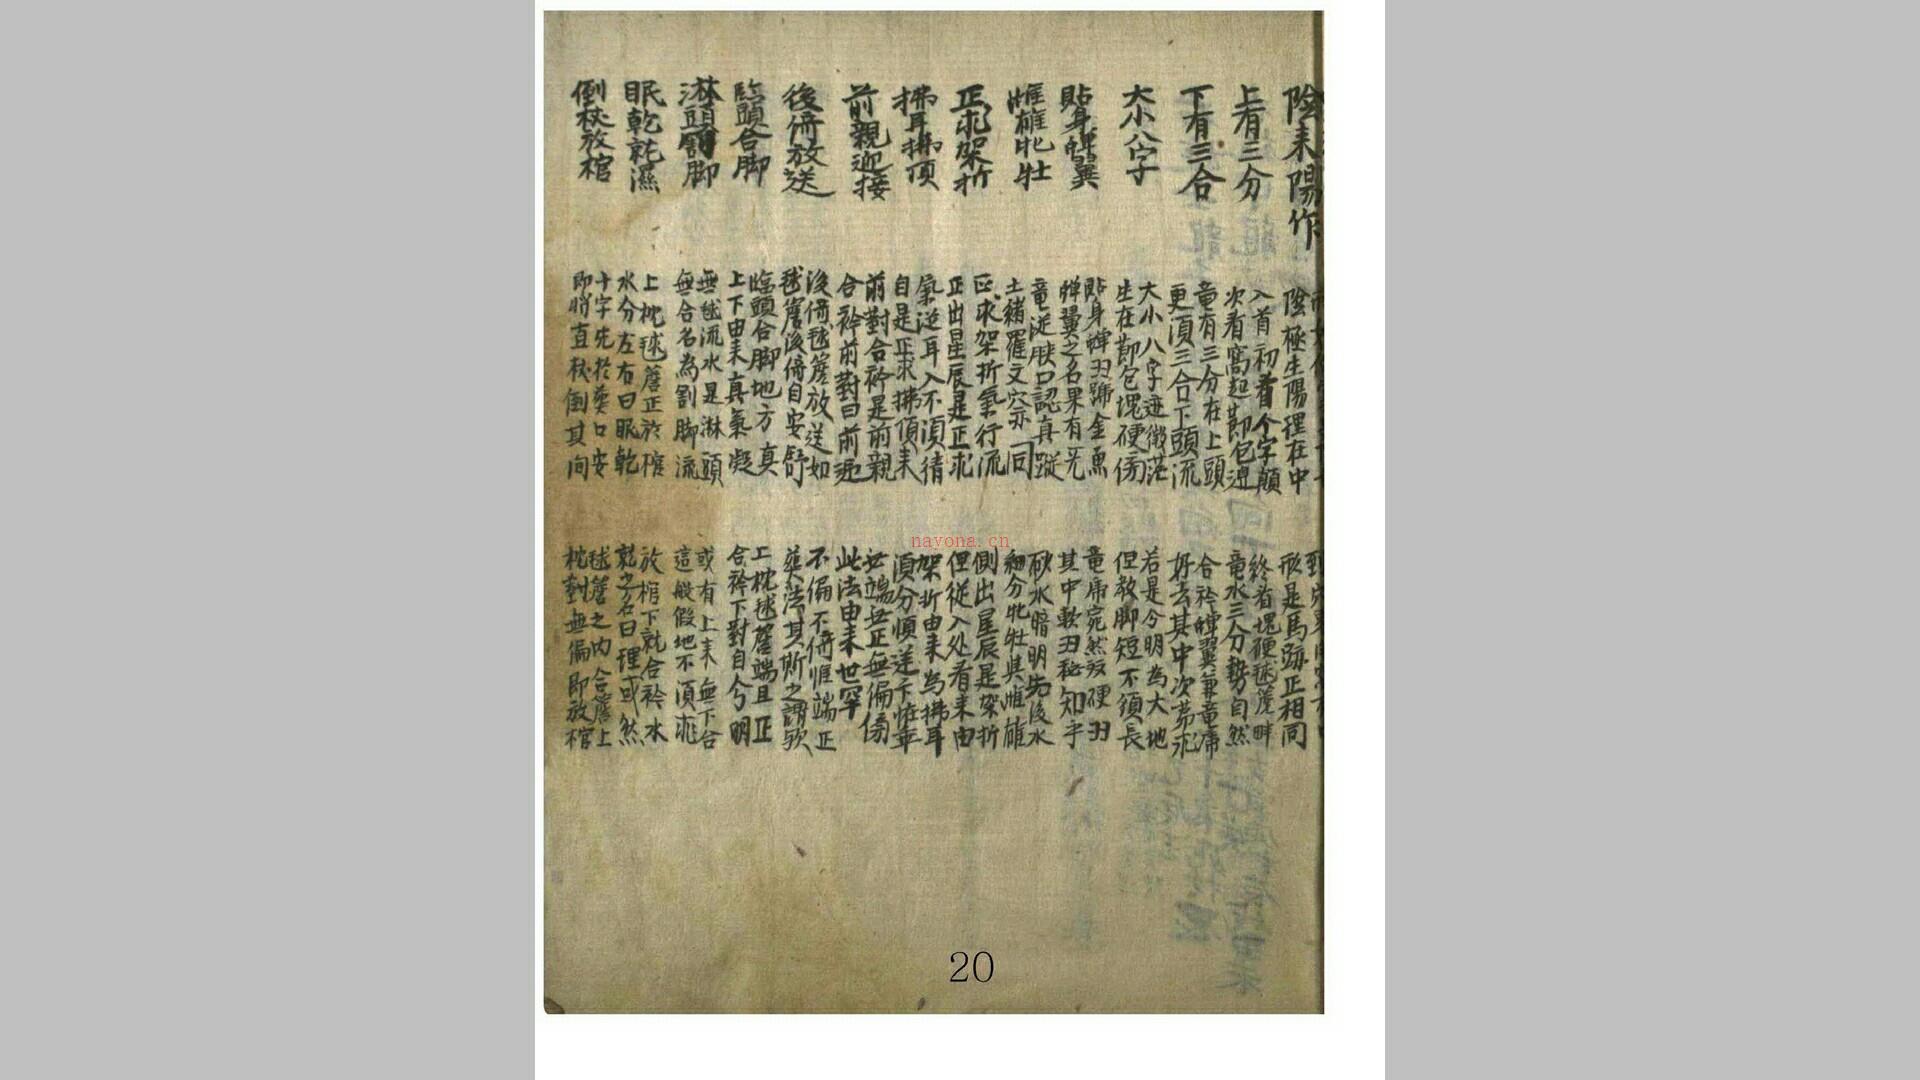 陰来陽作
陰極生陽理在中
形是馬跡正相同
上看三分
入首初看个字顛
次看窩起節包迎
終看塊硬毬簷畔
竜水三分勢自然
下有三合
竜有三分在上頭
更須三合下頭流
合衿蟬翼兼竜席
好去其中次第求
大小八字
大小八字迹微茫
生在節包塊硬傍
若是今明為大地
但教脚短不須長
貼身蟬翼
貼身蟬翼號金魚
蟬翼之名果有
竜席宛然硬翼
其中軟翼秘知乎
雌雄牝牡
竜從腴口認真蹤
土縮羅文穴亦同
水暗明先後水
細分牝牡與雌雄
正求架折
正求架折氣行流
正出星辰是正求
側出星辰是架折
但從入处看来由
拂耳拂頂
氣逆耳入不須猜
自是正求拂頂来
架折由来為拂耳
須分順逆下惟乖
前親迎接
前對合衿是前親
合衿前對曰前迎
無端無正無偏傍
此法由来世罕
後倚放送
後倚毬簷放送如
毬簷後倚自安舒
不偏不倚惟端正
葬法其斯之謂歟
臨頭合脚
臨頭合脚地方真
上下由来真氣凝
上枕毬簷端且正
合衿下對自兮明
淋頭割脚
無毬流水是淋頭
無合名為割脚流
或有上来無下合
這般假地不須求
眠乾就濕
上枕毬簷正放棺
水分左右曰眠乾
放棺下就合衿水
就之名曰理或然
倒杖放棺
十字先於葬口安
即將直杖倒其间
毬簷之內合簷上
枕對無偏即放棺
20
nayona.cn